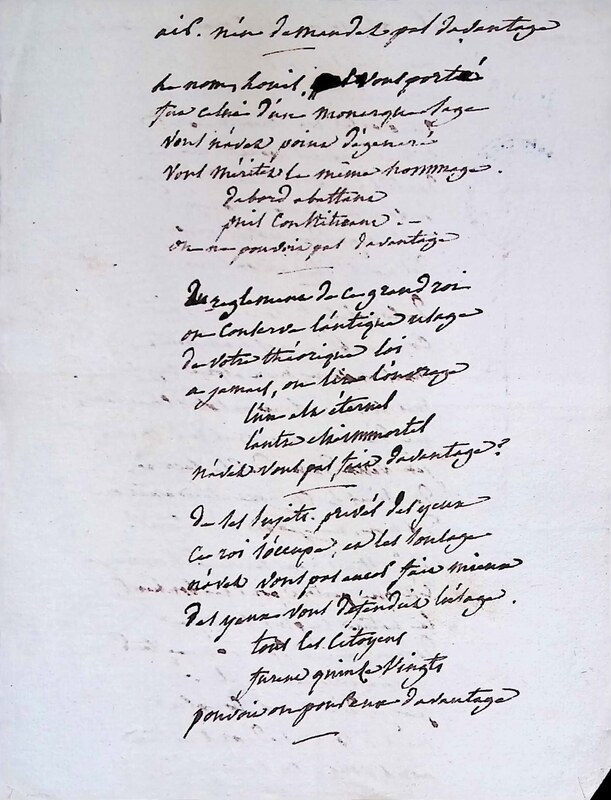 air. n'en demandez pas davantage
Le nom, Louis, que vous portez
fut celui d'un monarque sage
vous n'avez point dégeneré
vous mérités le même hommage.
dabord abattant
puis constituant. -
on ne pouvoit pas davantage
Du reglement de ce grand roi
on conserve l'antique usage
de votre théorique loi
a jamais, on lira l'ouvrage
l'un est éternel
l'autre est immortel
n'avez vous pas fait davantage?
de ses sujets privés des yeux
ce roi s'occupe, et les soulage
n'avez vous pas encor fait mieux
des yeux vous défendez l'usage.
tous les citoyens
furent quinze vingts
pouvoit on pousser davantage